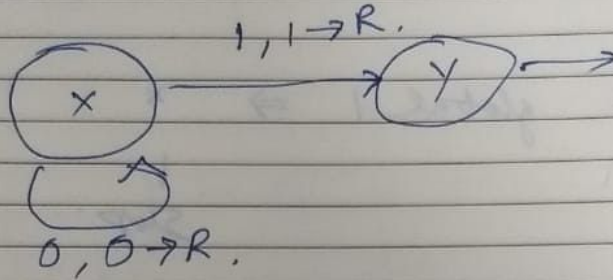 1, 1 → R.
X Y
0, 0 → R.